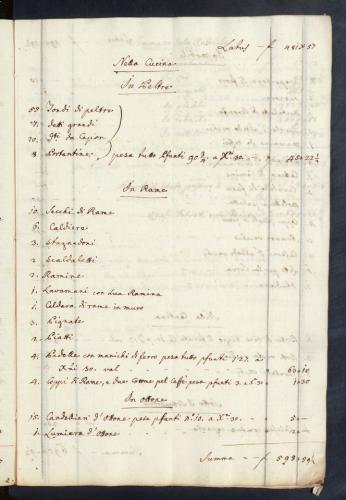 Latus - f 481x57
Nella Cucina
In Peltro
55. Tondi di peltro
7. detti grandi
20. da
8. Portantine, pesa tutto 90 3/4 a Xni 30. 45=22½
In Rame
10. Secchi di Rame
6. Caldiere
3. Stagnadoni
2. Scaldaletti
2. Ramine
1. Lavamani con sua Ramina
1. Caldara di rame in muro
3. Pignate
2. Piatti
4. Padelle con manichi di ferro pesa tutto pfunti
Xni 30. val 60=10
4. Coppi di Rame, e due Cocome pel Caffè pesa pfunti 3. a 30. 1=30
In Ottone
15. Candellieri d'Ottone pesa pfunti No. 10. a Xni 30. 5=
1. Lumiera d'Ottone
Summa - f